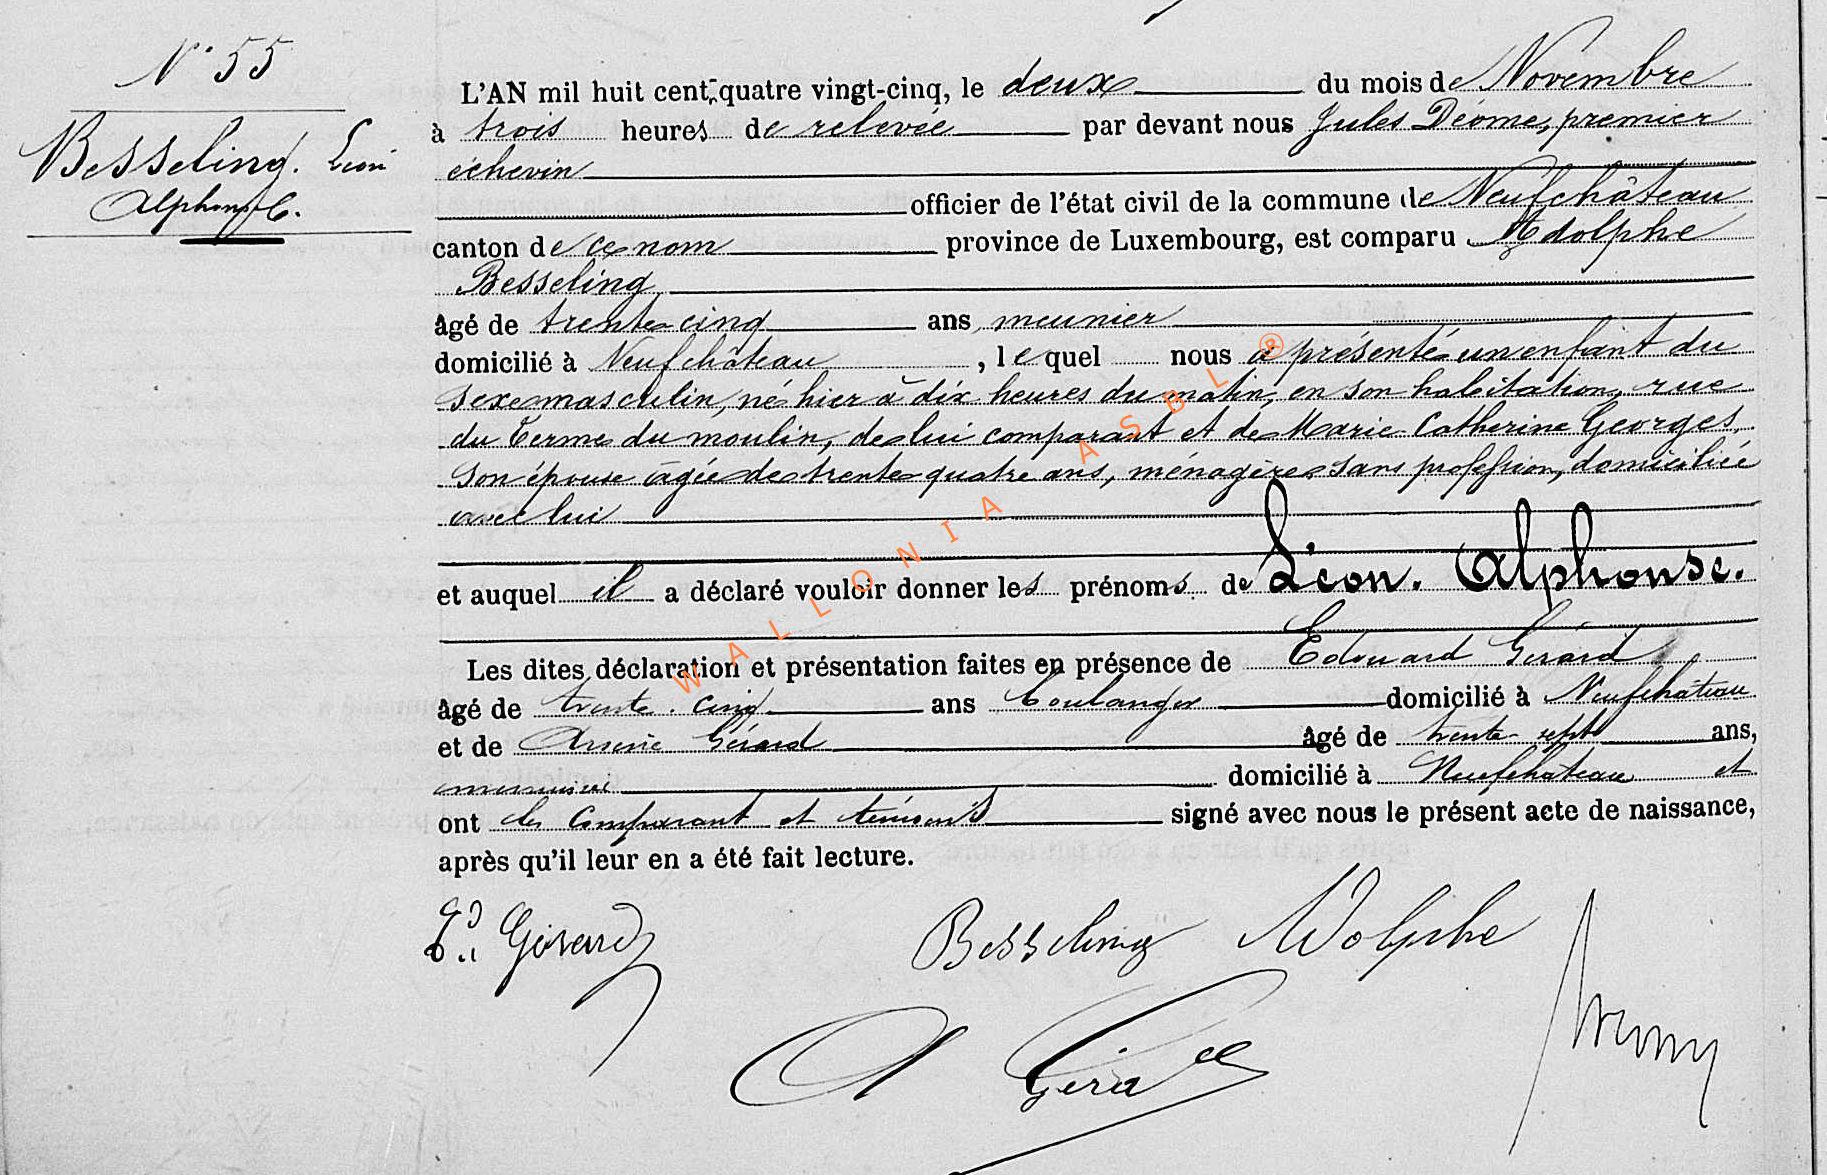 N° 55
Besseling. Léon
Alphonse.
L'AN mil huit cent quatre vingt-cinq, le deux du mois de Novembre
à trois heures de relevée par devant nous Jules Déome, premier
échevin
officier de l'état civil de la commune de Neufchâteau
canton de ce nom province de Luxembourg, est comparu Adolphe
Besseling
âgé de trente-cinq ans, meunier
domicilié à Neufchâteau, lequel nous a présenté un enfant du
sexe masculin, né hier à dix heures du matin, en son habitation, rue
du Terme du moulin, de lui comparant et de Marie Catherine Georges,
son épouse âgée de trente quatre ans, ménagère sans profession, domiciliée
avec lui
et auquel il a déclaré vouloir donner les prénoms de Léon. Alphonse.
Les dites déclaration et présentation faites en présence de Edouard Gérard
âgé de trente-cinq ans boulanger domicilié à Neufchâteau
et de Arsène Gérard âgé de trente-sept ans,
domicilié à Neufchateau et
ont les comparant et témoins signé avec nous le présent acte de naissance,
après qu'il leur en a été fait lecture.
Ed. Gérard Besseling Adolphe
A Gérard
WALLONIA ASBL ®